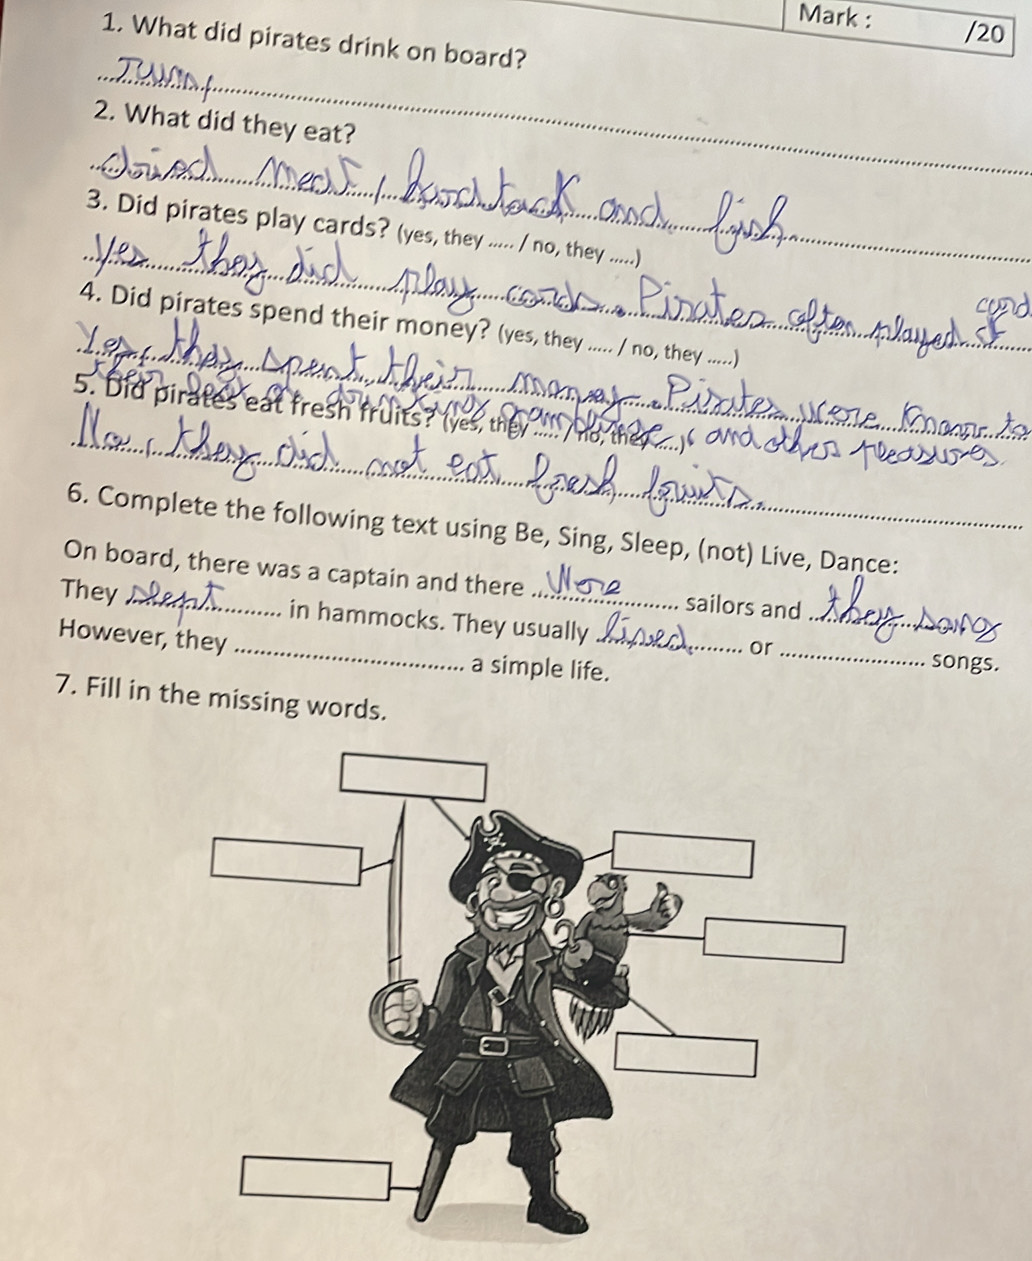 Mark : /20
1. What did pirates drink on board?
rum,
2. What did they eat?
dried meat, hardtack and fish
3. Did pirates play cards? (yes, they ..... / no, they .....)
Yes they did play cards. Pirates often played card
4. Did pirates spend their money? (yes, they ..... / no, they .....)
Yes, they spent their money. Pirates were known to
5. Did pirates eat fresh fruits? (yes, they ..... / no, they .....)
drunking and other pleasures.
No, they did not eat fresh fruits.
6. Complete the following text using Be, Sing, Sleep, (not) Live, Dance:
On board, there was a captain and there were sailors and they sang
They slept in hammocks. They usually lived or songs.
However, they a simple life.
7. Fill in the missing words.